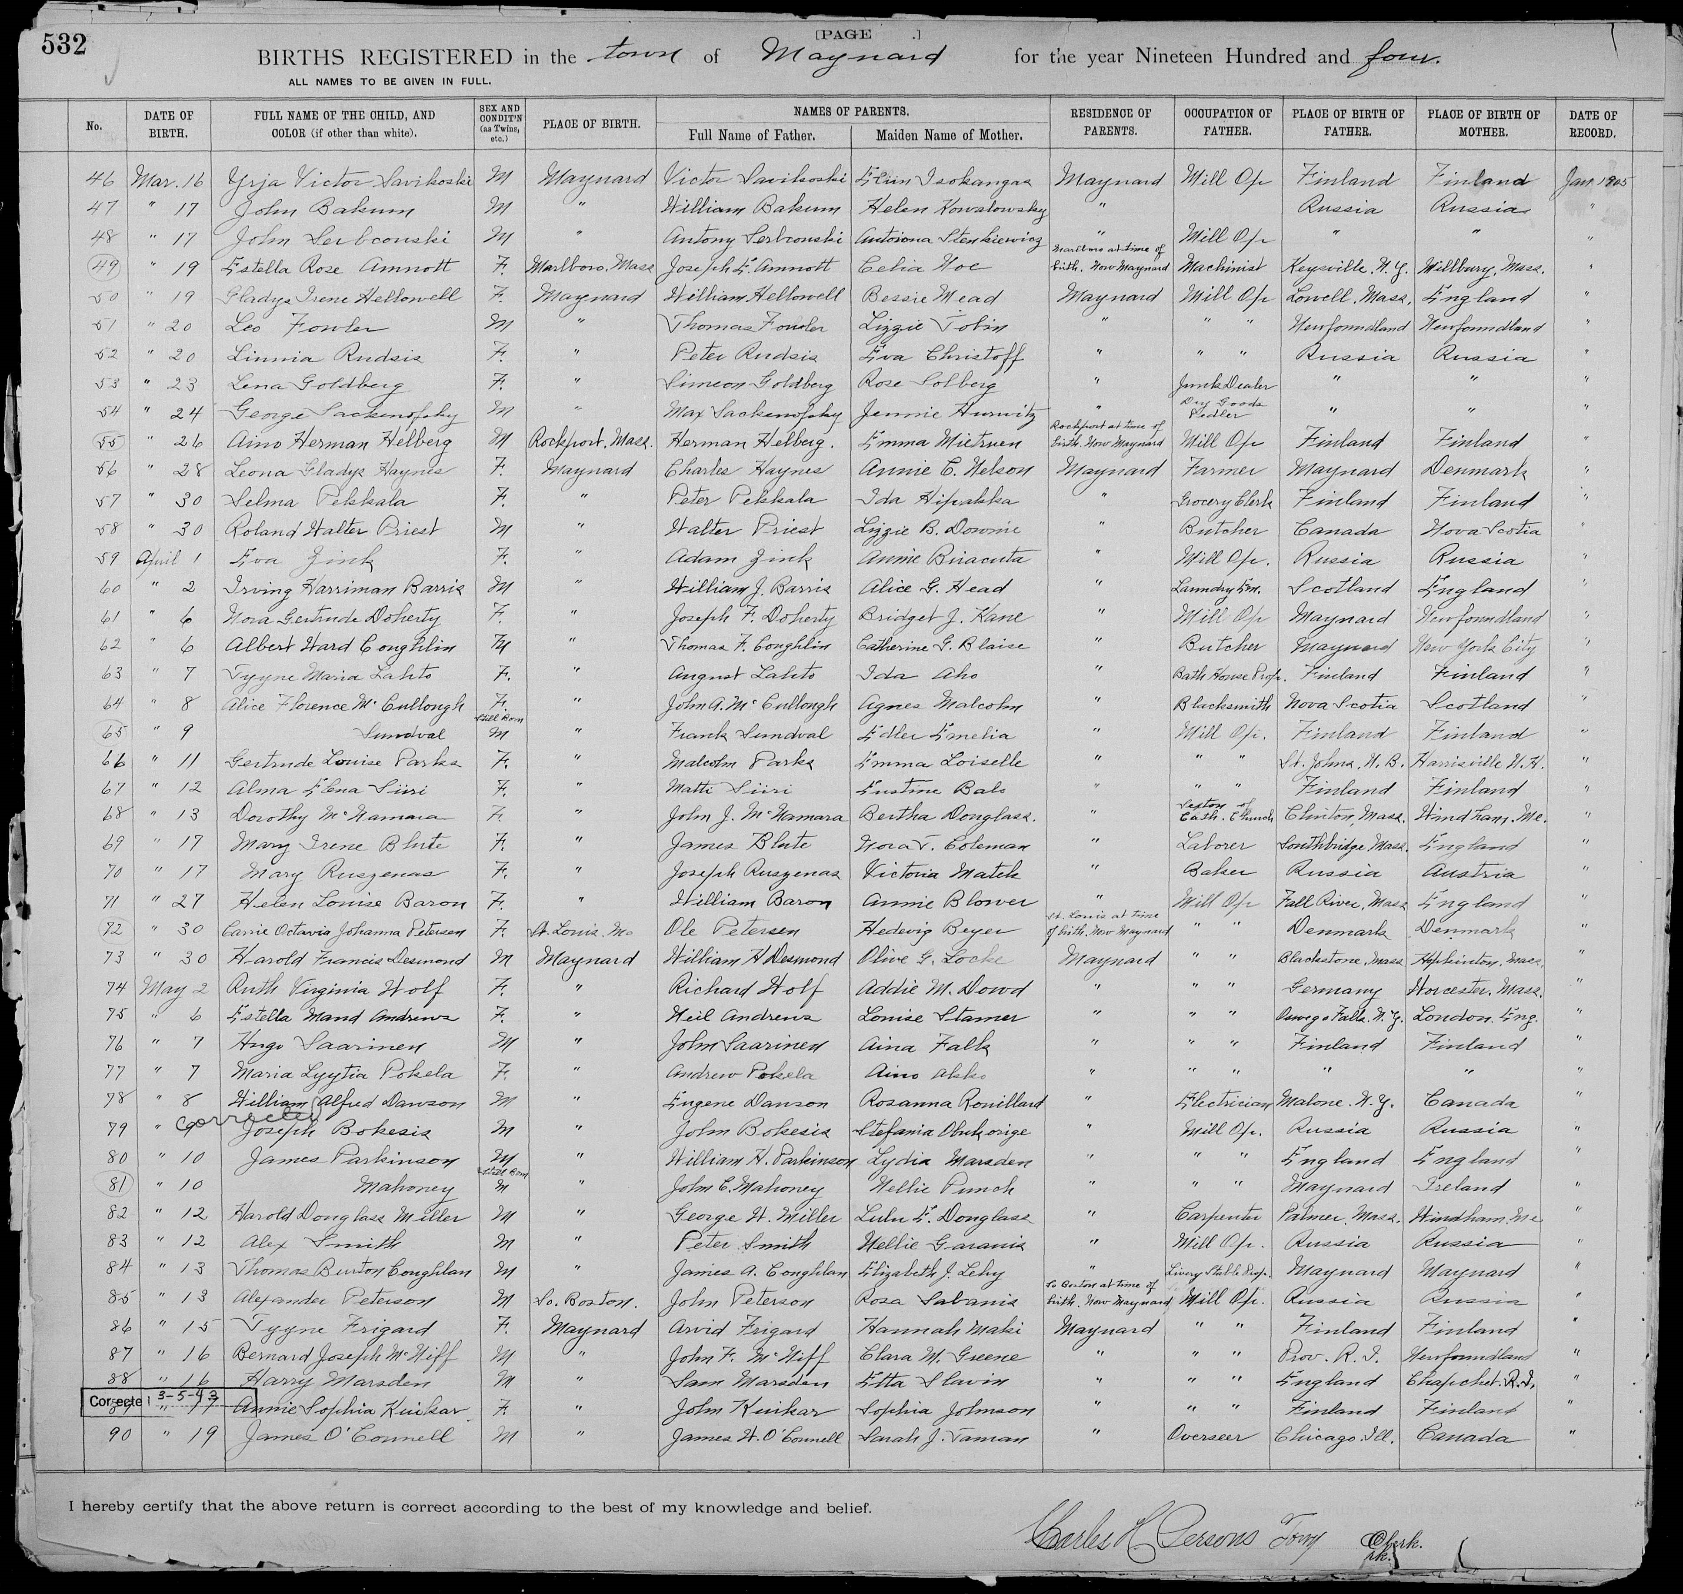 532
[PAGE .]
BIRTHS REGISTERED in the town of Maynard for the year Nineteen Hundred and four.
ALL NAMES TO BE GIVEN IN FULL.
No. DATE OF BIRTH. FULL NAME OF THE CHILD, AND COLOR (if other than white). SEX AND CONDIT'N (as Twins, etc.) PLACE OF BIRTH. NAMES OF PARENTS. Full Name of Father. Maiden Name of Mother. RESIDENCE OF PARENTS. OCCUPATION OF FATHER. PLACE OF BIRTH OF FATHER. PLACE OF BIRTH OF MOTHER. DATE OF RECORD.
46 Mar. 16 Yrja Victor Savikoski M Maynard Victor Savikoski Elin Isokangas Maynard Mill Op Finland Finland Jan. 1905
47 " 17 John Bakum M " William Bakum Helen Kowslowsky " Russia Russia "
48 " 17 John Serbconski M " Antony Serbconski Antoiona Stenkiewicz " Mill Op " " "
49 " 19 Estella Rose Amnott F. Marlboro, Mass Joseph E. Amnott Celia Noe Marlboro at time of birth. Now Maynard Machinist Keysville, N.Y. Millbury, Mass. "
50 " 19 Gladys Irene Hellowell F. Maynard William Hellowell Bessie Mead Maynard Mill Op Lowell, Mass. England "
51 " 20 Leo Fowler M " Thomas Fowler Lizzie Tobin " " " Newfoundland Newfoundland "
52 " 20 Linnia Rudsis F. " Peter Rudsis Eva Christoff " " " Russia Russia "
53 " 23 Lena Goldberg F. " Simeon Goldberg Rose Solberg " Junk Dealer " " "
54 " 24 George Sackenofsky M " Max Sackenofsky Jennie Hurwitz " Dry Goods Pedler " " "
55 " 26 Aino Herman Helberg M Rockport, Mass. Herman Helberg. Emma Mietruen Rockport at time of birth. Now Maynard Mill Op Finland Finland "
56 " 28 Leona Gladys Haynes F. Maynard Charles Haynes Annie C. Nelson Maynard Farmer Maynard Denmark "
57 " 30 Selma Pekkala F. " Peter Pekkala Ida Hipakka " Grocery Clerk Finland Finland "
58 " 30 Roland Walter Priest M " Walter Priest Lizzie B. Downie " Butcher Canada Nova Scotia "
59 April 1 Eva Jink F. " Adam Jink Annie Biracuta " Mill Op. Russia Russia "
60 " 2 Irving Harriman Barris M " William J. Barris Alice G. Head " Laundry Em. Scotland England "
61 " 6 Nora Gertrude Doherty F. " Joseph F. Doherty Bridget J. Kane " Mill Op Maynard Newfoundland "
62 " 6 Albert Ward Coughlin M " Thomas F. Coughlin Catherine G. Blaise " Butcher Maynard New York City "
63 " 7 Tyyne Maria Lahto F. " August Lahto Ida Aho " Bath House Prop. Finland Finland "
64 " 8 Alice Florence McCullough F. " John A. McCullough Agnes Malcolm " Blacksmith Nova Scotia Scotland "
65 " 9 Sundval Still Born M " Frank Sundval Edler Emelia " Mill Op. Finland Finland "
66 " 11 Gertrude Louise Parks F. " Malcolm Parks Emma Loiselle " " " St. Johns, N.B. Harrisville N.H. "
67 " 12 Alma Elena Siiri F. " Matti Siiri Eustine Bals " " " Finland Finland "
68 " 13 Dorothy McNamara F. " John J. McNamara Bertha Douglass. " Sexton of Cath. Church Clinton, Mass. Windham, Me. "
69 " 17 Mary Irene Blute F. " James Blute Nora T. Coleman " Laborer Southbridge, Mass. England "
70 " 17 Mary Ruszenas F. " Joseph Ruszenas Victoria Matek " Baker Russia Austria "
71 " 27 Helen Louise Baron F. " William Baron Annie Blower " Mill Op Fall River, Mass England "
72 " 30 Carrie Octavia Johanna Petersen F. St. Louis, Mo Ole Petersen Hedevig Beyer St. Louis at time of birth. Now Maynard " " Denmark Denmark "
73 " 30 Harold Francis Desmond M Maynard William H Desmond Olive G. Locke Maynard " " Blackstone, Mass Hopkinton, Mass. "
74 May 2 Ruth Virginia Wolf F. " Richard Wolf Addie M. Dowd " " " Germany Worcester, Mass. "
75 " 6 Estella Maud Andrews F. " Neil Andrews Louise Stamer " " " Oswego Falls, N.Y. London. Eng. "
76 " 7 Hugo Saarinen M " John Saarinen Aina Falk " " " Finland Finland "
77 " 7 Maria Lyytia Pokela F. " Andrew Pokela Aino Akko " " " " " "
78 " 8 William Alfred Dawson M " Eugene Dawson Rosanna Rouillard " Electrician Malone, N.Y. Canada "
corrected
79 " 9 Joseph Bokesis M " John Bokesis Stefania Obukorige " Mill Op. Russia Russia "
80 " 10 James Parkinson M " William H. Parkinson Lydia Marsden " " " England England "
81 " 10 Mahoney Still Born M " John C. Mahoney Nellie Punch " " " Maynard Ireland "
82 " 12 Harold Douglass Miller M " George W. Miller Lulu E. Douglass " Carpenter Palmer, Mass. Windham, Me "
83 " 12 Alex Smith M " Peter Smith Nellie Garanis " Mill Op. Russia Russia "
84 " 13 Thomas Burton Coughlan M " James A. Coughlan Elizabeth J. Lehy " Livery Stable Prop. Maynard Maynard "
85 " 13 Alexander Peterson M So. Boston. John Peterson Rosa Sabanis So Boston at time of birth. Now Maynard Mill Op. Russia Russia "
86 " 15 Tyyne Frigard F. Maynard Arvid Frigard Hannah Maki Maynard " " Finland Finland "
87 " 16 Bernard Joseph McNiff M " John F. McNiff Clara M. Greene " " " Prov. R.I. Newfoundland "
88 " 16 Harry Marsden M " Sam Marsden Etta Slavin " " " England Chapchet, R.I. "
Corrected 3-5-43
89 " 17 Annie Sophia Kuikar F. " John Kuikar Sophia Johnson " " " Finland Finland "
90 " 19 James O'Connell M " James W. O'Connell Sarah J. Taman " Overseer Chicago, Ill. Canada "
I hereby certify that the above return is correct according to the best of my knowledge and belief.
Charles H. Persons Town Clerk.